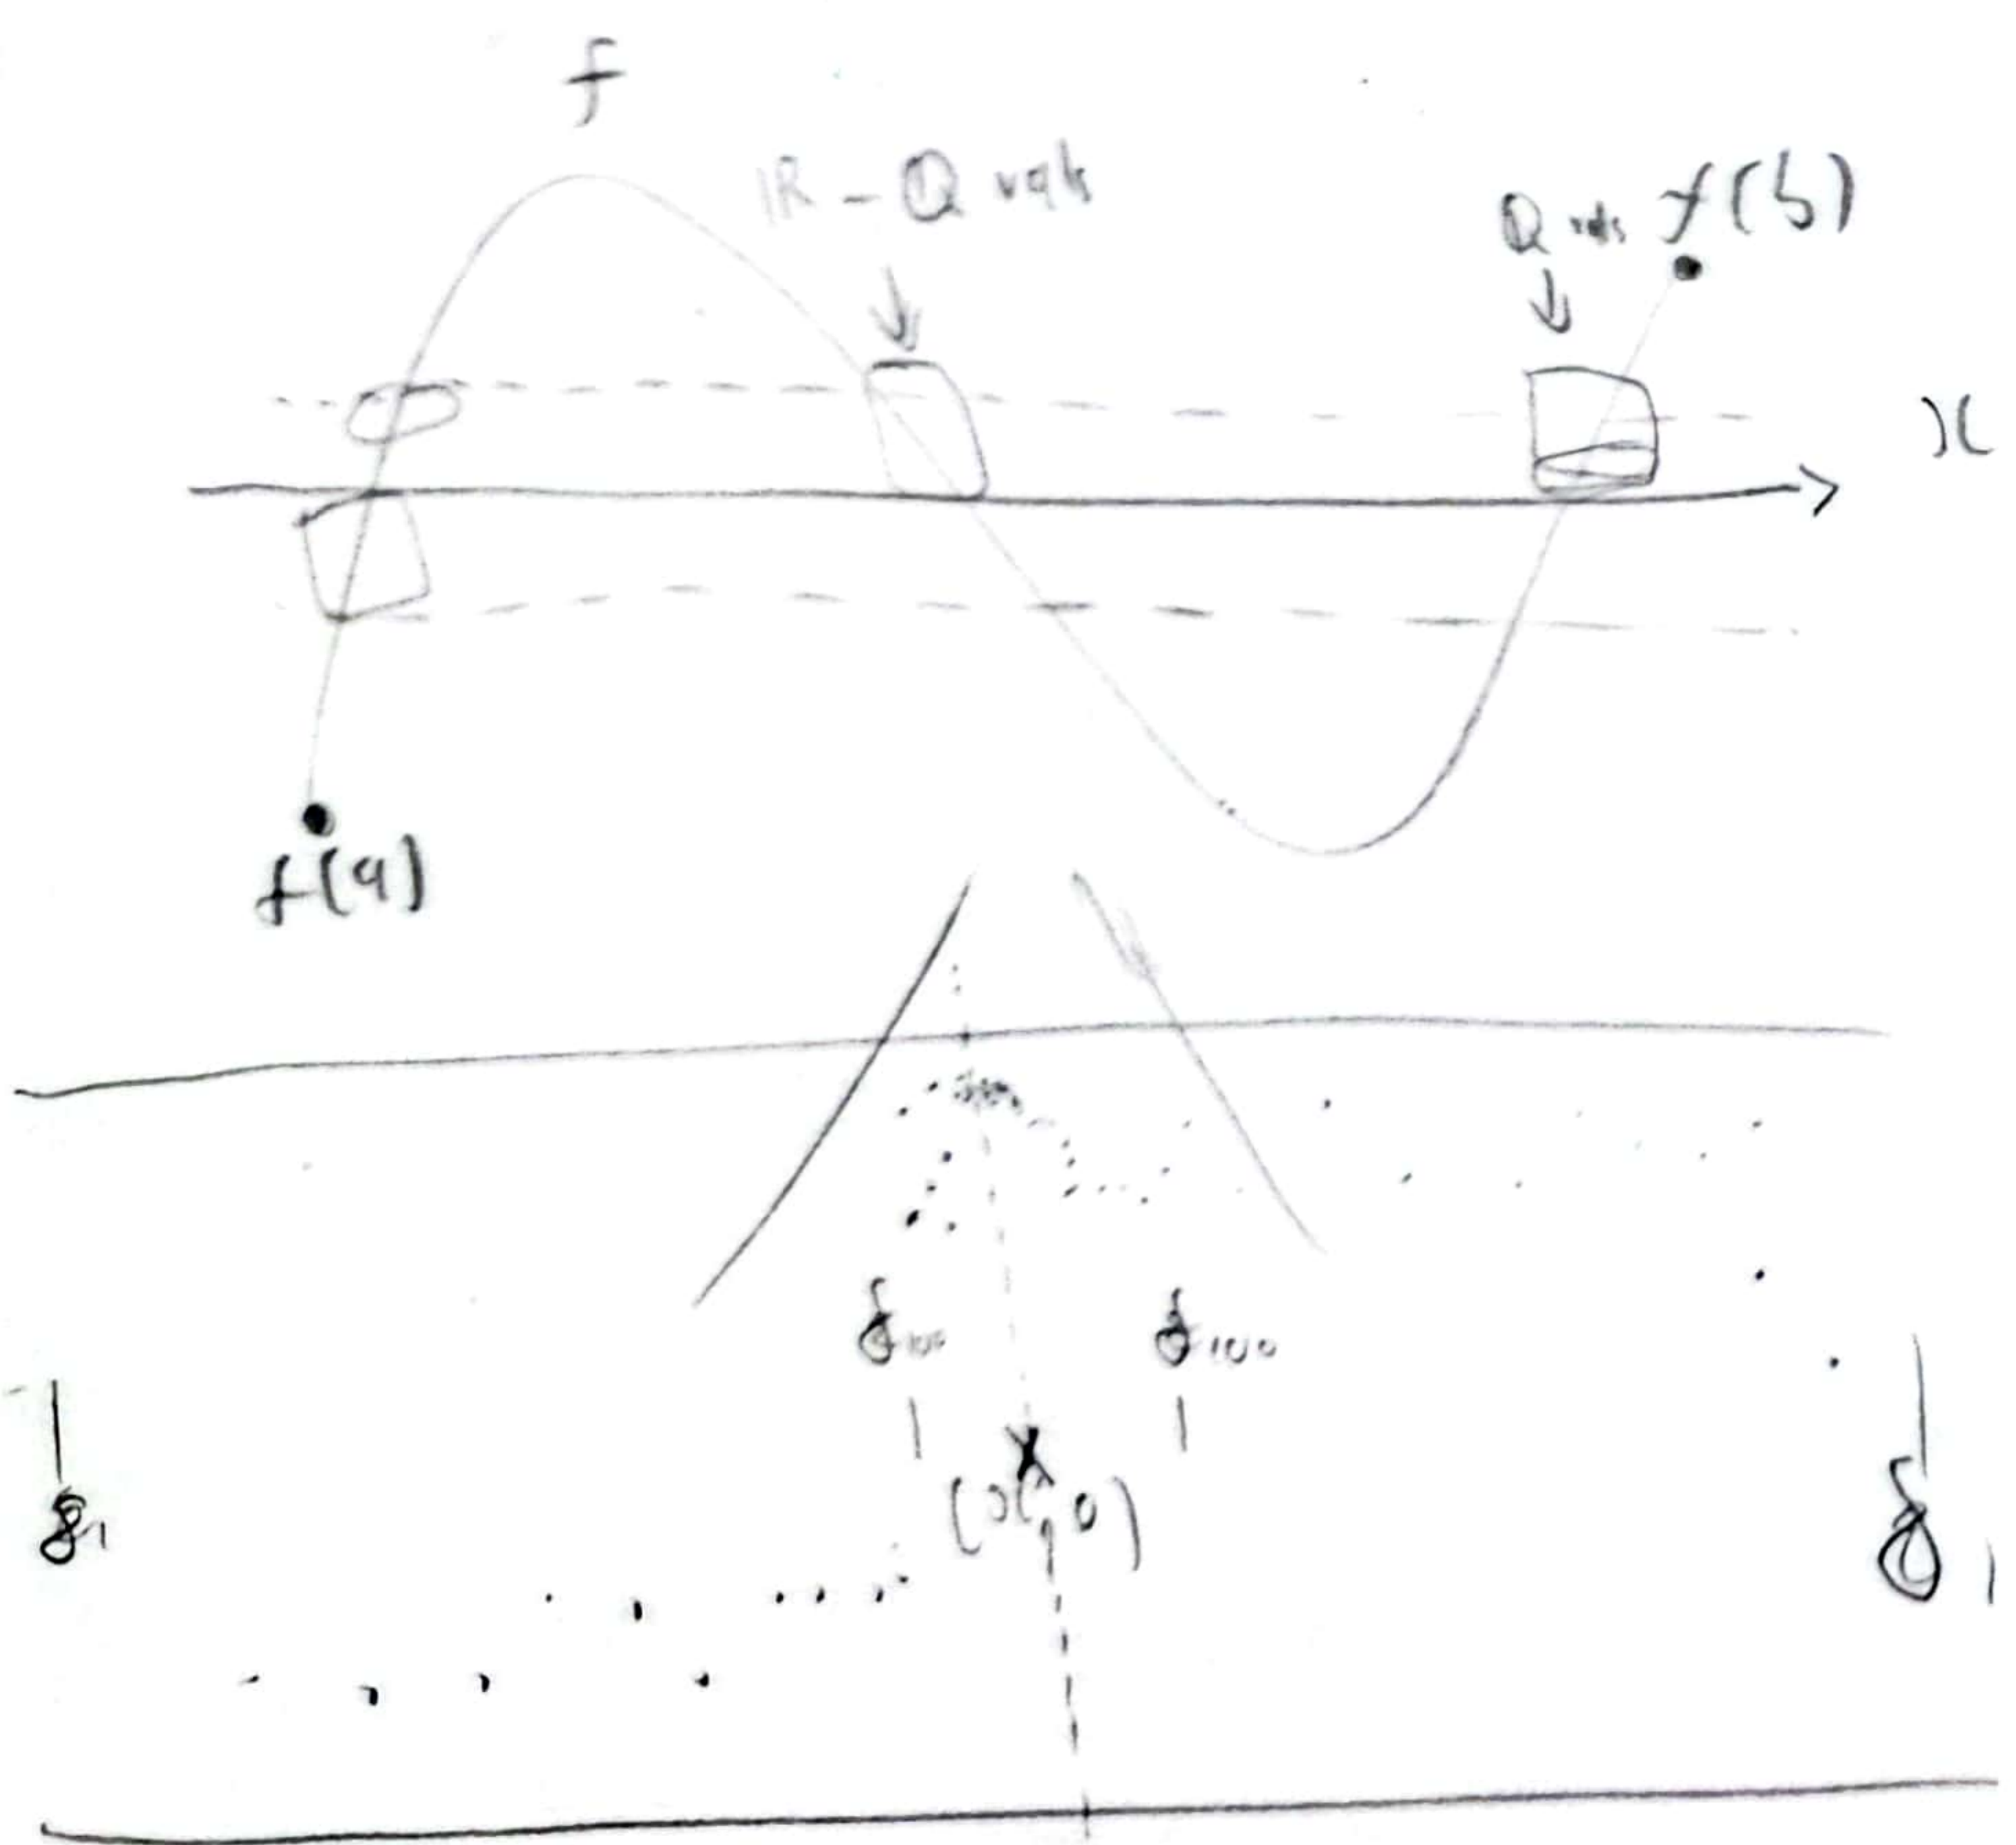 f
IR - Q vals
Q vals f(b)
x
f(a)
δ100 δ100
(x, 0)
δ1 δ1